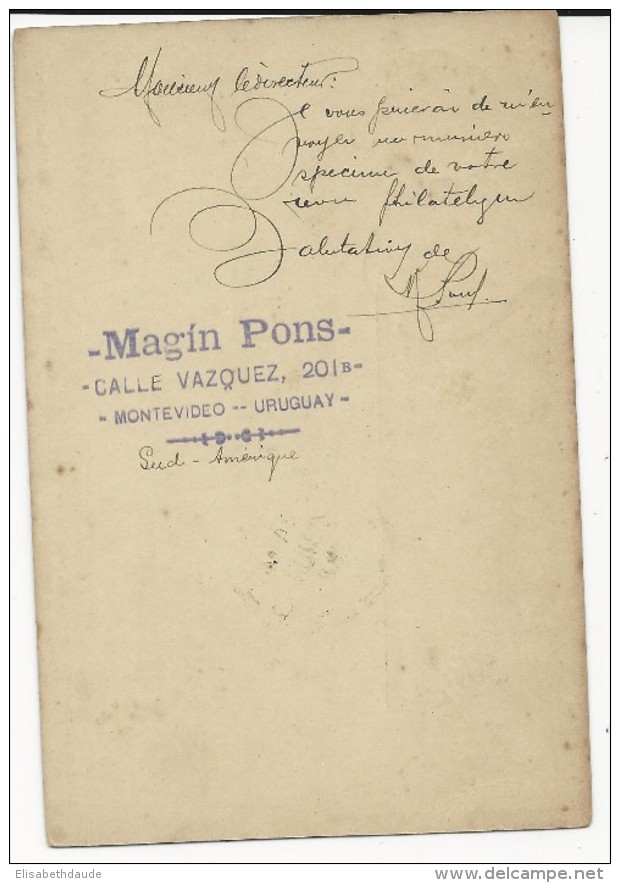 Monsieur le directeur:
Je vous prierai de m'en-
voyer un numéro
specimen de votre
revue philatelique
Salutations de
M Pons.
-Magín Pons-
-CALLE VAZQUEZ, 201B-
- MONTEVIDEO -- URUGUAY -
Sud - Amérique
Elisabethdaude
www.delcampe.net